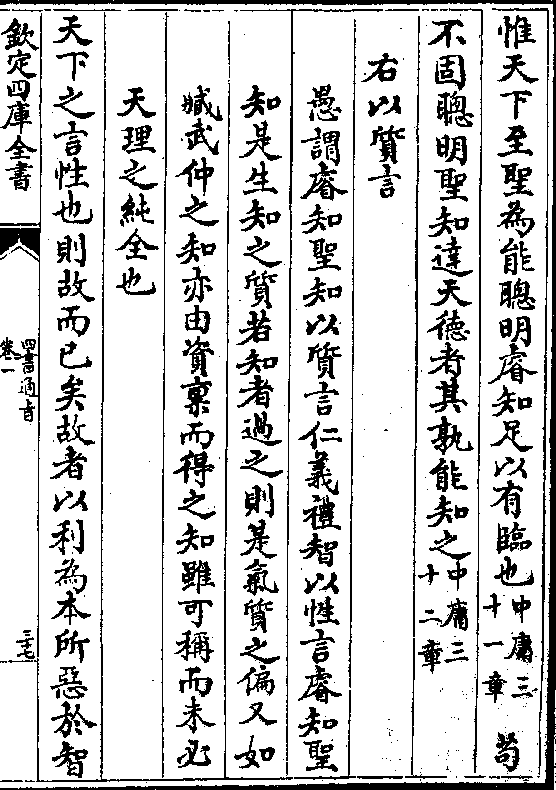 惟天下至聖為能聰明睿知足以有臨也中庸三十一章 苟
不固聰明聖知達天德者其孰能知之中庸三十二章
右以質言
愚謂睿知聖知以質言仁義禮智以性言睿知聖
知是生知之質若知者過之則是氣質之偏又如
臧武仲之知亦由資稟而得之知雖可稱而未必
天理之純全也
天下之言性也則故而已矣故者以利為本所惡於智
欽定四庫全書
四書通旨
卷一
三七